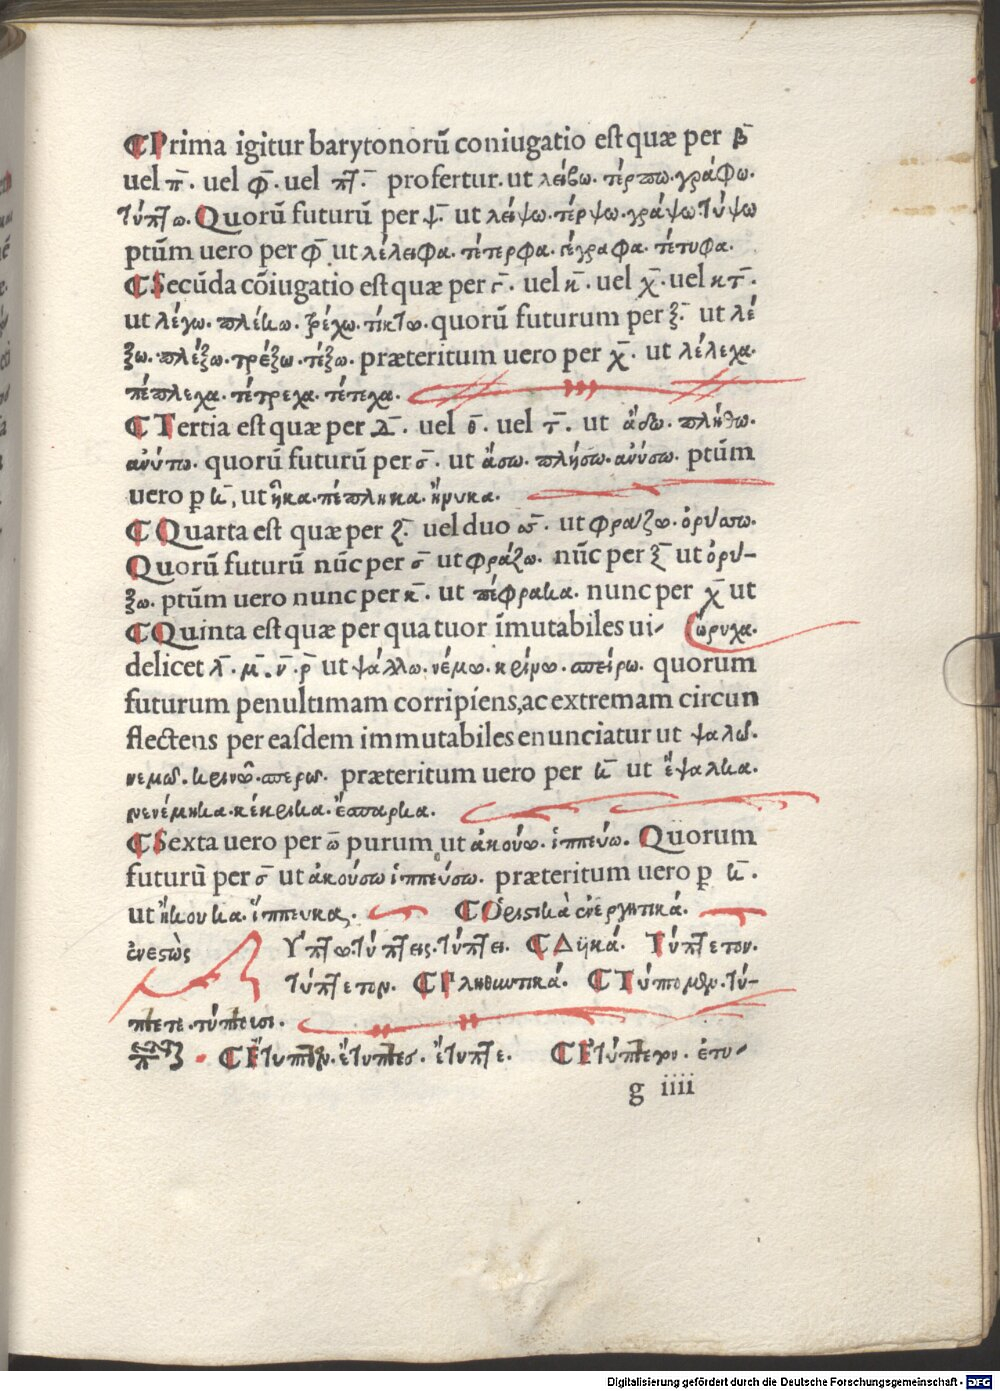 Prima igitur barytonorū coniugatio est quæ per β̄
uel π̄. uel φ̄. uel πτ̄. profertur. ut λείβω. τέρπω. γράφω.
τύπτω. Quorū futurū per ψ̄. ut λείψω. τέρψω. γράψω. τύψω
ptūm uero per φ̄ ut λέλειφα. τέτερφα. γέγραφα. τέτυφα.
Secūda cōiugatio est quæ per γ̄. uel κ̄. uel χ̄. uel κτ̄.
ut λέγω. πλέκω. τρέχω. τίκτω. quorū futurum per ξ̄. ut λέ
ξω. πλέξω. τρέξω. τέξω. præteritum uero per χ̄. ut λέλεχα.
πέπλεχα. τέτρεχα. τέτεχα.
Tertia est quæ per δ̄. uel θ̄. uel τ̄. ut ἄδω. πλήθω.
ἀνύτω. quorū futurū per σ̄. ut ἄσω. πλήσω. ἀνύσω. ptūm
uero p κ̄, ut ἧκα. πέπληκα. ἤνυκα.
Quarta est quæ per ζ̄. uel duo σσ̄. ut φράζω. ὀρύσσω.
Quorū futurū nūc per σ̄ ut φράσω. nūc per ξ̄ ut ὀρύ-
ξω. ptūm uero nunc per κ̄. ut πέφρακα. nunc per χ̄ ut
Quinta est quæ per quatuor īmutabiles ui- ὤρυχα.
delicet λ̄. μ̄. ν̄. ρ̄ ut ψάλλω. νέμω. κρίνω. σπείρω. quorum
futurum penultimam corripiens, ac extremam circun
flectens per easdem immutabiles enunciatur ut ψαλῶ.
νεμῶ. κρινῶ. σπερῶ. præteritum uero per κ̄ ut ἔψαλκα.
νενέμηκα. κέκρικα. ἔσπαρκα.
Sexta uero per ω̄ purum ut ἀκούω. ἱππεύω. Quorum
futurū per σ̄ ut ἀκούσω ἱππεύσω. præteritum uero p κ̄.
ut ἤκουκα. ἵππευκα. Ὁριστικὰ ἐνεργητικά.
ἐνεστὼς Τύπτω. τύπτεις. τύπτει. Δυϊκά. Τύπτετον.
τύπτετον. Πληθυντικά. Τύπτομεν. τύ-
πτετε. τύπτουσι.
Ἔτυπτον. ἔτυπτες. ἔτυπτε. Ἐτύπτετον. ἐτυ-
g iiii
Digitalisierung gefördert durch die Deutsche Forschungsgemeinschaft - DFG